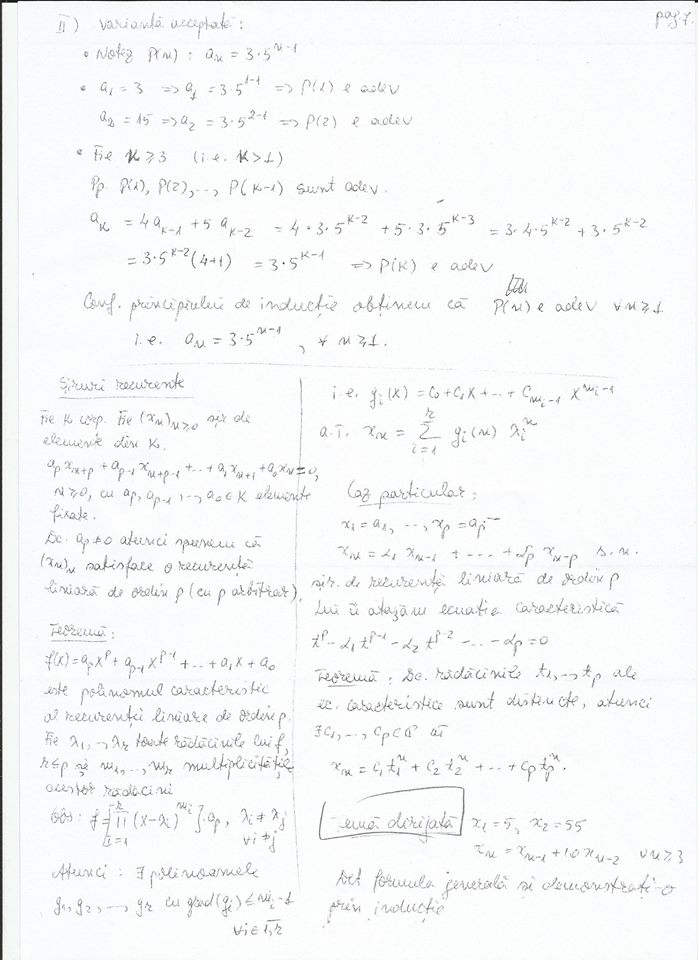 pag 7.
II) variantă acceptată:
• Notez P(n): aₙ = 3·5ⁿ⁻¹
• a₁ = 3 ⇒ a₁ = 3·5¹⁻¹ ⇒ P(1) e adev
a₂ = 15 ⇒ a₂ = 3·5²⁻¹ ⇒ P(2) e adev
• Fie k ≥ 3 (i.e. k > 1)
Pp. P(1), P(2), .., P(k-1) sunt adev.
aₖ = 4aₖ₋₁ + 5aₖ₋₂ = 4·3·5ᵏ⁻² + 5·3·5ᵏ⁻³ = 3·4·5ᵏ⁻² + 3·5ᵏ⁻²
= 3·5ᵏ⁻²(4+1) = 3·5ᵏ⁻¹ ⇒ P(k) e adev
Conf. principiului de inducție obținem că P(n) e adev ∀n≥1
i.e. aₙ = 3·5ⁿ⁻¹, ∀ n≥1.
Șiruri recurente
Fie K corp. Fie (xₙ)ₙ≥₀ șir de
elemente din K.
aₚxₙ₊ₚ + aₚ₋₁xₙ₊ₚ₋₁ + ... + a₁xₙ₊₁ + a₀xₙ = 0,
n≥0, cu aₚ, aₚ₋₁, .., a₀ ∈ K elemente
fixate.
Dc. aₚ ≠ 0 atunci spunem că
(xₙ)ₙ satisface o recurență
liniară de ordin p (cu p arbitrar).
Teoremă:
f(x) = aₚxᵖ + aₚ₋₁xᵖ⁻¹ + ... + a₁x + a₀
este polinomul caracteristic
al recurenții liniare de ordin p.
Fie λ₁, .., λᵣ toate rădăcinile lui f,
r ≤ p și m₁, .., mᵣ multiplicitățile
acestor rădăcini
Obs: f = [∏ᵢ₌₁ʳ (x-λᵢ)^(mᵢ)]·aₚ, λᵢ ≠ λⱼ
∀i≠j
Atunci: ∃ polinoamele
g₁, g₂, .., gᵣ cu grad(gᵢ) ≤ mᵢ-1
∀i∈1,r
i.e. gᵢ(x) = c₀ + c₁x + ... + c_(mᵢ-1) x^(mᵢ-1)
a.î. xₙ = ∑ᵢ₌₁ʳ gᵢ(n) λᵢⁿ
Caz particular:
x₁ = a₁, .., xₚ = aₚ
xₙ = α₁ xₙ₋₁ + ... + αₚ xₙ₋ₚ s.n.
șir. de recurență liniară de ordin p
Lui îi atașăm ecuația caracteristică
tᵖ - α₁tᵖ⁻¹ - α₂tᵖ⁻² - ... - αₚ = 0
Teoremă: Dc. rădăcinile t₁, .., tₚ ale
ec. caracteristice sunt distincte, atunci
∃c₁, .., cₚ∈ℂ aî
xₙ = c₁t₁ⁿ + c₂t₂ⁿ + ... + cₚtₚⁿ.
Temă dirijată x₁ = 5, x₂ = 55
xₙ = xₙ₋₁ + 10xₙ₋₂ ∀n≥3
Det formula generală și demonstrați-o
prin inducție